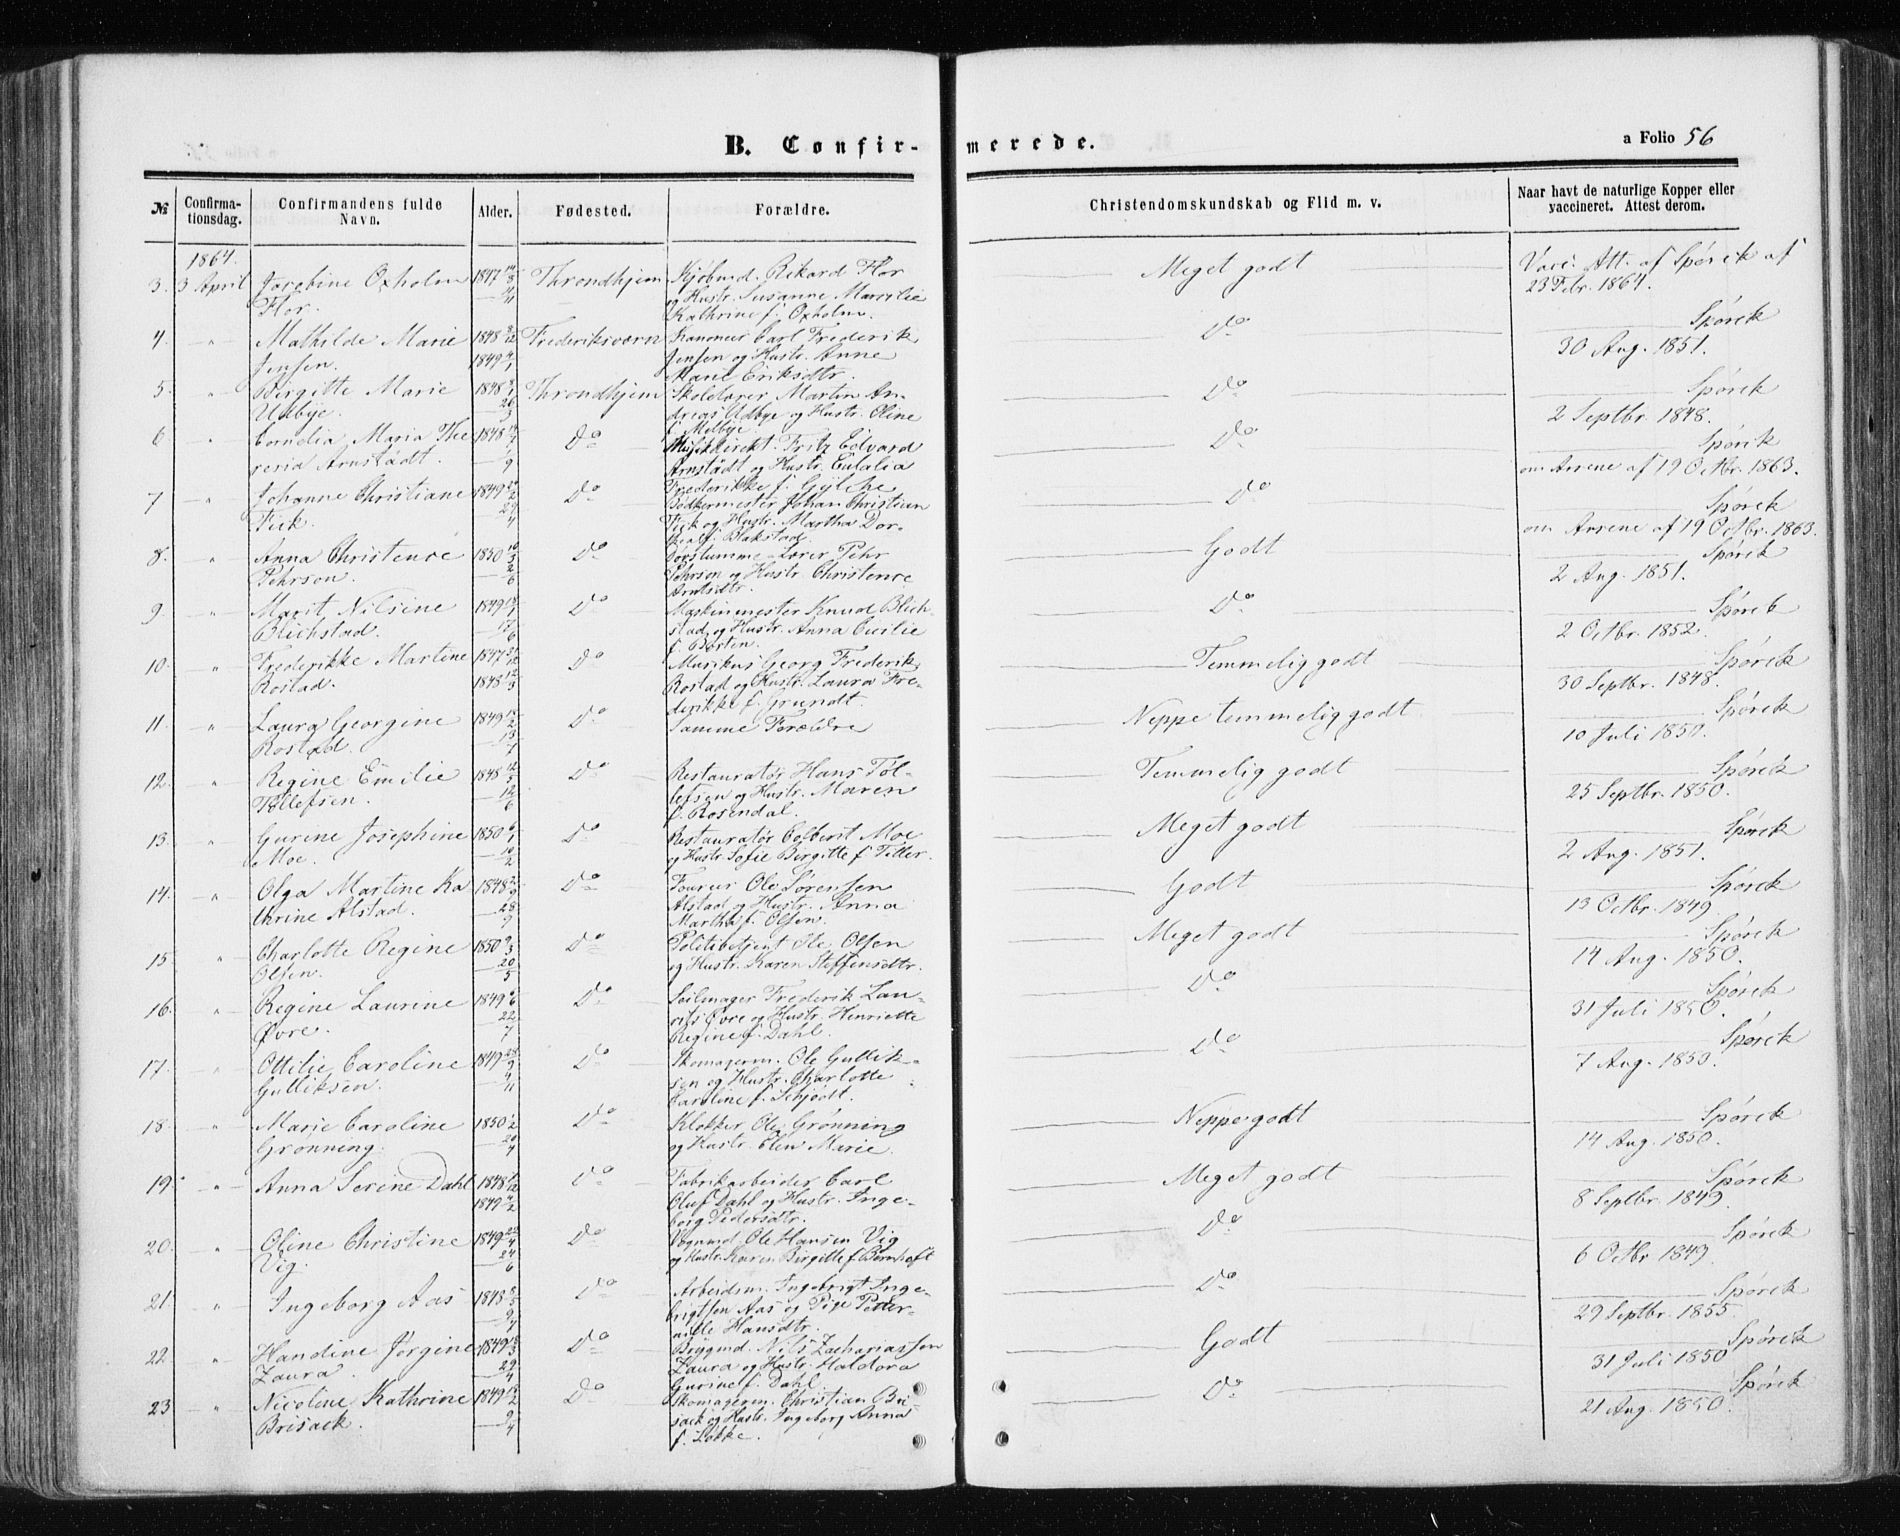 B. Confir- merede.
a Folio 56
№ Confirma-tionsdag. Confirmandens fulde Navn. Alder. Fødested. Forældre. Christendomskundskab og Flid m. v. Naar havt de naturlige Kopper eller vaccineret. Attest derom.
1864.
3. 3 April Josebine Oxholm 1847 Throndhjem Kjøbmd. Rikard Flor Meget godt Vacc. Att. af Spørck af
Flor. og Hustr. Susanne 23 Febr. 1864.
Kathrine f. Oxholm.
4. " Mathilde Marie 1848 Frederiksværn Kanoneer Carl Frederik Do Spørck
Jensen. 1849 Jensen og Hustr. Anne 30 Aug. 1851.
Marie Eriksdtr.
5. " Birgitte Marie 1848 Throndhjem Skolelærer Martin An- Do Spørck
Udbye. dreas Udbye og Hustr. Oline 2 Septbr. 1848.
f. Melbye.
6 " Cornelia Maria The 1848 Do Musikdirekt. Fritz Edvard Do Spørck
resia Arnstädt. Arnstädt og Hustr. Eulalia om Arrene af 19 Octbr. 1863.
Frederikke f.
7 " Johanne Christiane 1849 Do Bødkermester Johan Christian Do Spørck
Fick. Fick og Hustr. Martha Dor- om Arrene af 19 Octbr. 1863.
thea f. Blakstad.
8. " Anna Christence 1850 Do Døvstumme-Lærer Pehr Godt Spørck
Pehrson. Pehrson og Hustr. Christence 2 Aug. 1851.
Arntsdtr.
9. " Marit Nilsine 1849 Do Maskinmester Knud Blich- Do Spørck
Blichstad. stad og Hustr. Anna Cecilie 2 Octbr. 1852.
f. Borten.
10. " Frederikke Martine 1847 Do Musikus Georg Frederik Temmelig godt Spørck
Rostad. 1848 Rostad og Hustr. Laura Fre- 30 Septbr. 1848.
derikke f. Grundt.
11. " Laura Georgine 1849 Do Samme Forældre Neppe temmelig godt Spørck
Rostad. 10 Juli 1850.
12. " Regine Emilie 1848 Do Restauratør Hans Tol- Temmelig godt Spørck
Tollefsen. lefsen og Hustr. Maren 25 Septbr. 1850.
f. Rosendal.
13. " Gurine Josephine 1850 Do Restauratør Colberit Moe Meget godt Spørck
Moe. og Hustr. Sofie Birgitte f. Titter. 2 Aug. 1851.
14. " Olga Martine Ka 1848 Do Fourer Ole Sørensen Godt Spørck
thrine Alstad. Alstad og Hustr. Anna 13 Octbr. 1849.
Martha f. Olsen.
15 " Charlotte Regine 1850 Do Politibetjent Ole Olsen Meget godt Spørck
Olsen. og Hustr. Karen Steffensdtr. 14 Aug. 1850.
16. " Regine Laurine 1849 Do Seilmager Frederik Lau- Do Spørck
Øvre. rits Øvre og Hustr. Henriette 31 Juli 1850.
Regine f. Dahl.
17. " Ottilie Caroline 1849 Do Skomagerm. Ole Gullik- Do Spørck
Gulliksen. sen og Hustr. Charlotte 7 Aug. 1850.
Caroline f. Schjødt.
18. " Marie Caroline 1850 Do Klokker Ole Grønning Neppe godt Spørck
Grønning. og Hustr. Elen Marie. 14 Aug. 1850.
19. " Anna Serine Dahl 1848 Do Fabrikarbeider Carl Meget godt Spørck
1849 Oluf Dahl og Hustr. Inge- 8 Septbr. 1849.
borg Pedersdtr.
20. " Oline Christine 1849 Do Vognmd Ole Hansen Vig Do Spørck
Vig. og Hustr. Karen Birgitte f. Bernhoft 6 Octbr 1849.
21. " Ingeborg Aas 1848 Do Arbeidsm. Ingebrigt Inge- Do Spørck
brigtsen Aas og Pige Petter- 29 Septbr. 1855.
nille Hansdtr.
22 " Handine Jørgine 1849 Do Bygmd. Nils Zachariassen Godt Spørck
Zaura. Zaura og Hustr. Haldora 31 Juli 1850
Gurine f. Dahl.
23 " Nicoline Kathrine 1849 Do Skomagerm. Christian Bri Do Spørck
Brisack. sack og Hustr. Ingeborg Anna 21 Aug. 1850.
f. Løkke.